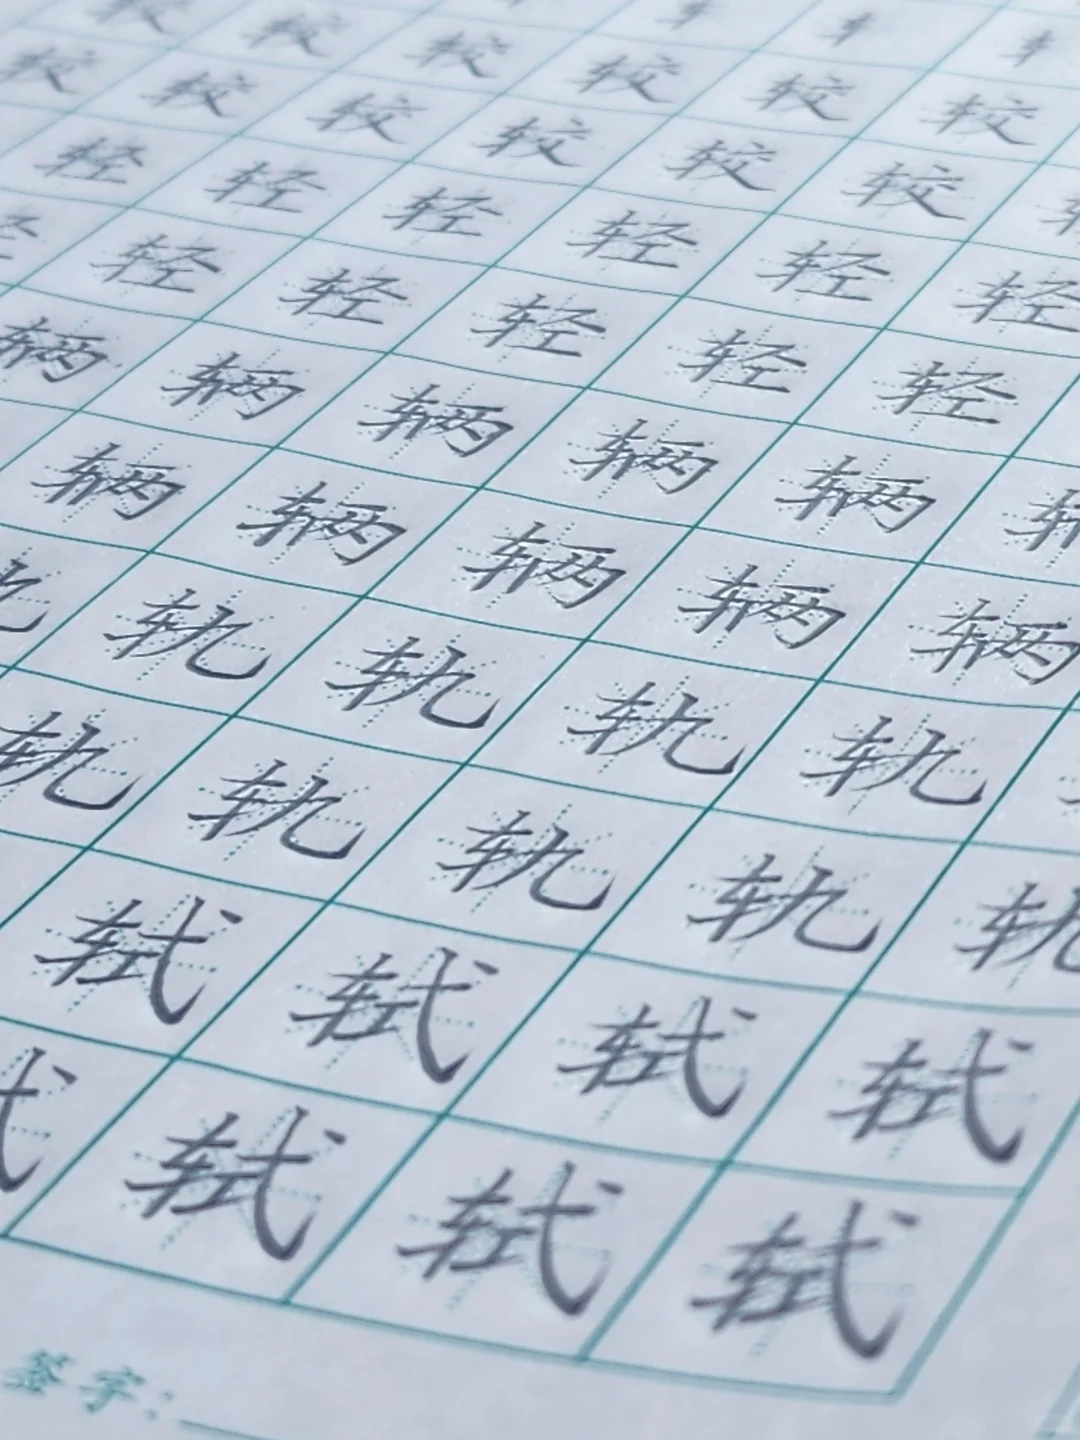 较 较 较 较 较 较
较 较 较 较 较 较
轻 轻 轻 轻 轻 轻
轻 轻 轻 轻 轻
辆 辆 辆 辆 辆
辆 辆 辆 辆 辆
轨 轨 轨 轨
轨 轨 轨 轨 轨
轼 轼 轼 轼
轼 轼 轼
签字：